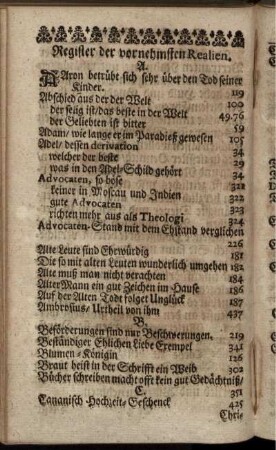 Register der vornehmsten Realien.
A.
AAron betrübt sich sehr über den Tod seiner
Kinder. 119
Abschied aus der der Welt 100
der seelig ist/ das beste in der Welt 49.76
der Geliebten ist bitter 59
Adam/ wie lange er im Paradieß gewesen 105
Adel/ dessen derivation 34
welcher der beste 29
was in den Adel-Schild gehört 34
Advocaten, so böse 321
keiner in Moscau und Indien 322
gute Advocaten 323
richten mehr aus als Theologi 324
Advocaten-Stand mit dem Ehstand verglichen
226
Alte Leute sind Ehrwürdig 181
Die so mit alten Leuten wunderlich umgehen 182
Alte muß man nicht verachten 184
Alter Mann ein gut Zeichen im Hause 186
Auf der Alten Todt folget Unglück 187
Ambrosius/ Urtheil von ihm 437
B.
Beförderungen sind nur Beschwerungen. 219
Beständiger Ehlichen Liebe Exempel 341
Blumen-Königin 126
Braut heist in der Schrifft ein Weib 302
Bücher schreiben macht offt kein gut Gedächtniß/
351
C.
Cananisch-Hochzeit-Geschenck 425
Chri-